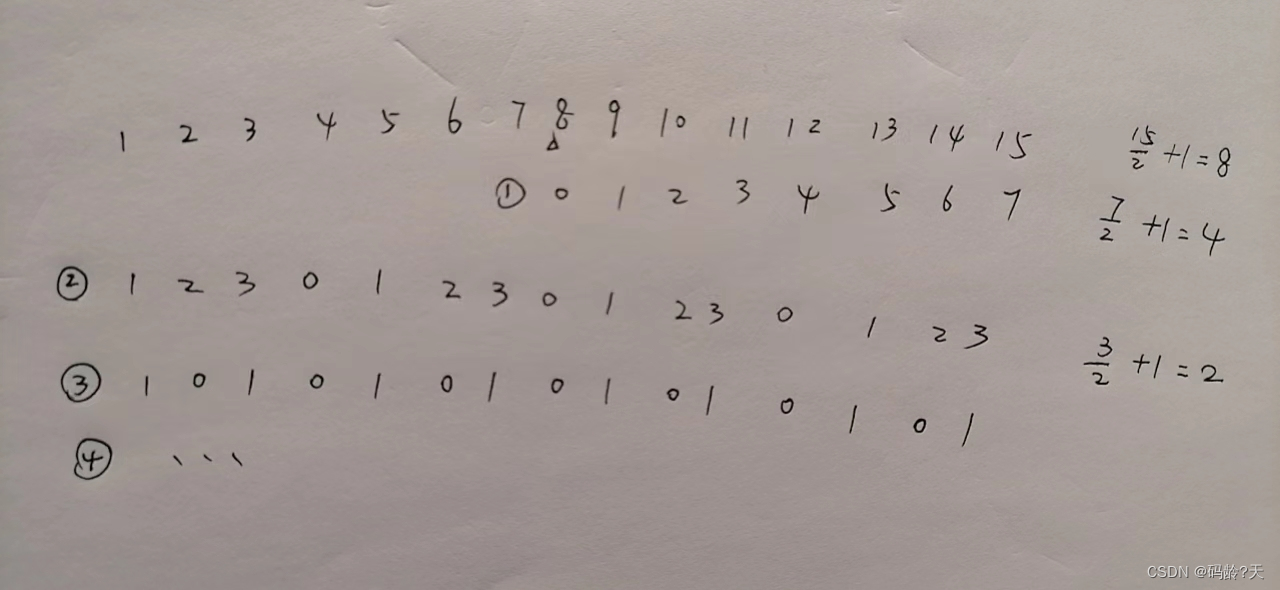 1 2 3 4 5 6 7 8 9 10 11 12 13 14 15 15/2 +1=8
△
① 0 1 2 3 4 5 6 7 7/2 +1=4
② 1 2 3 0 1 2 3 0 1 2 3 0 1 2 3
3/2 +1=2
③ 1 0 1 0 1 0 1 0 1 0 1 0 1 0 1
④ 、、、
CSDN @码龄?天